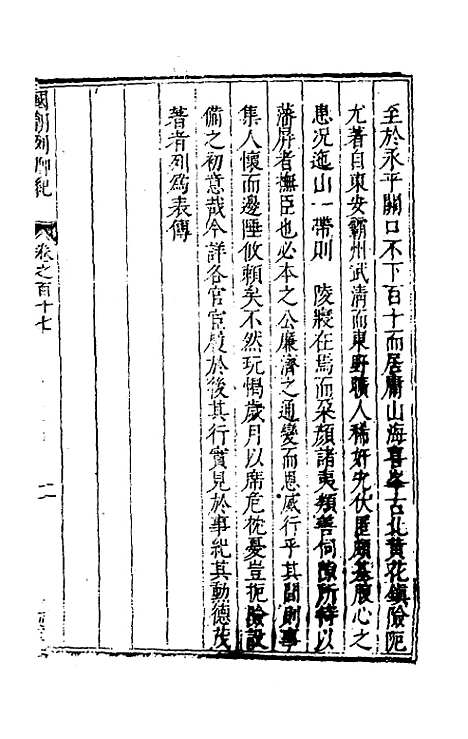 至於永平關口不下百十而居庸山海喜峯古北黄花鎮險阨
尤著自東安霸州武清而東野曠人稀奸宄伏匿頗基腹心之
患况迤山一帶則　陵寢在焉而朶顔諸夷類善伺隙所恃以
藩屏者撫臣也必本之公廉濟之通變而恩威行乎其間則事
集人懷而邊陲攸賴矣不然玩愒歲月以席危枕憂豈扼險設
備之初意哉今詳各官宦蹟於後其行實見於事紀其勳德茂
著者列爲表傳
國朝列卿紀
卷之百十七
二